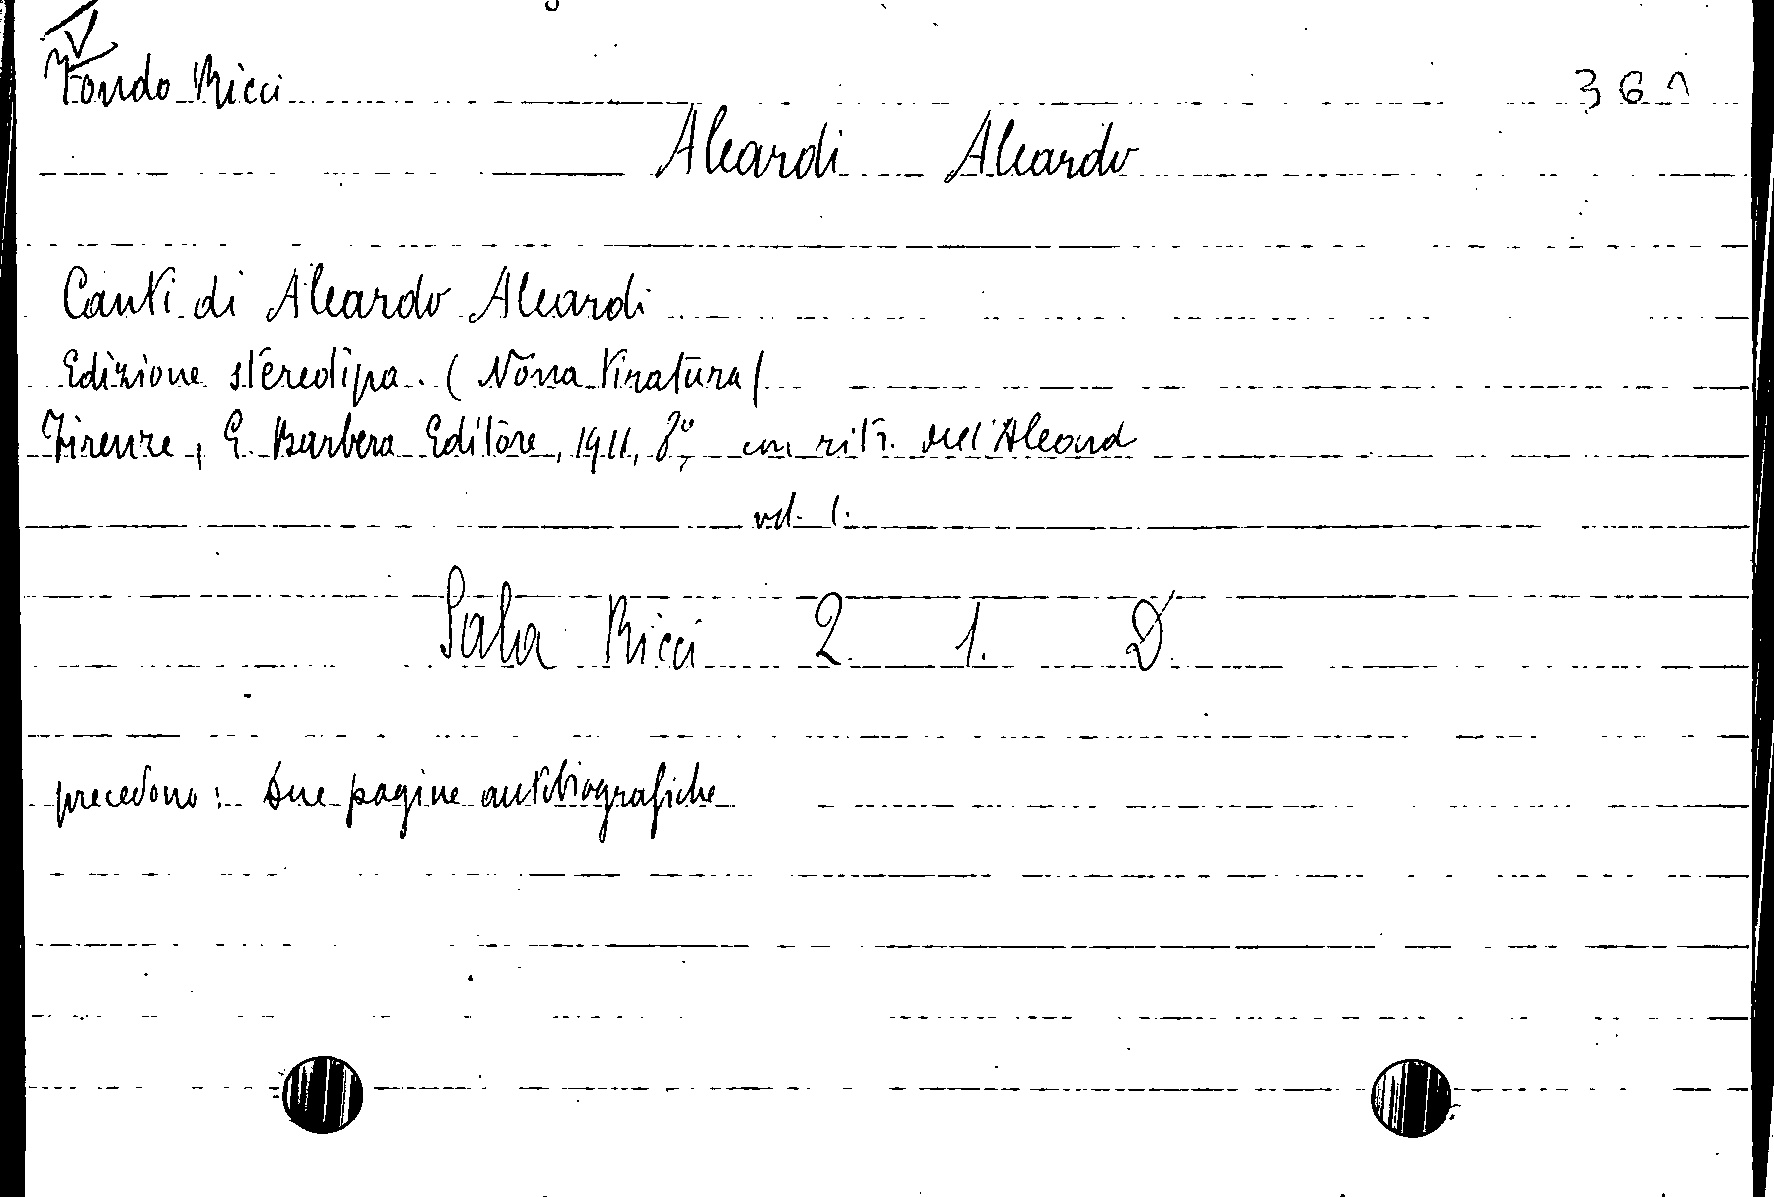 Fondo Ricci 361
Aleardi Aleardo
Canti di Aleardo Aleardi
Edizione stereotipa. (Nona tiratura)
Firenze, G. Barbera Editore, 1911, 8°, con ritr. dell'Aleard
vol. 1.
Sala Ricci 2. 1. D.
precedono: Due pagine autobiografiche